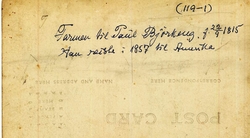 (11a-1)
Farmen til Paul Bjørkeng, f. 28/9 1815
Han reiste i 1857 til Amerika
POST CARD